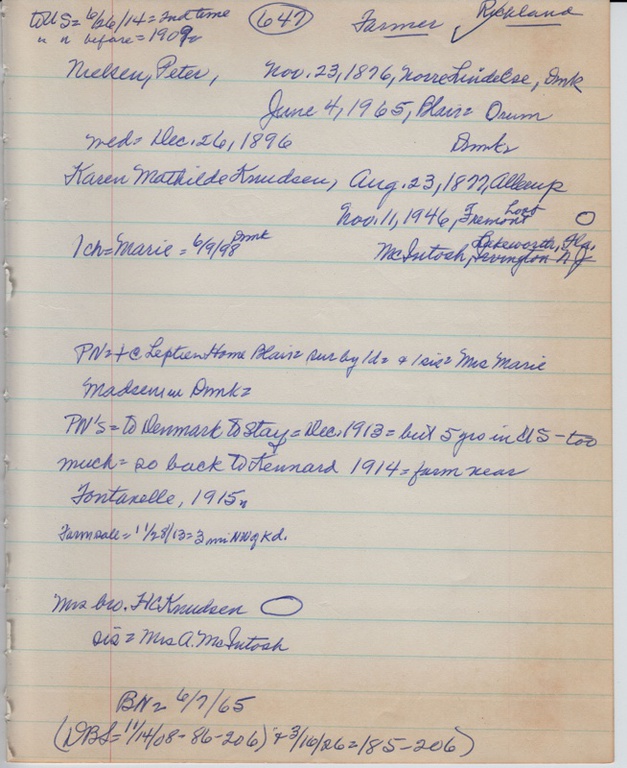 to US = 6/26/14 = 2nd time (647) Farmer ✓ Richland
" " before = 1909
Nielsen, Peter, Nov. 23, 1876, Norre Lindelse, Dmk
June 4, 1965, Blair = Orum
med = Dec. 26, 1896 Dmk
Karen Mathilde Knudsen, Aug. 23, 1877,
Nov. 11, 1946, Fremont
1 ch = Marie = 6/9/98 Dmk McIntosh, Lakeworth, Fla.
Irvington N J
PN = + @ Leptien Home Blair = sur by 1d = & 1 sis = Mrs Marie
Madsen in Dmk =
PN's = to Denmark to stay = Dec. 1913 = but 5 yrs in US - too
much = so back to Kennard 1914 = farm near
Fontanelle, 1915
Farm sale = 11/28/13 = 3 mi NW of Kd.
Mrs bro. HC Knudsen
sis = Mrs A. McIntosh
BN = 6/7/65
(DBS = 11/14/08 - 86 - 206) & 3/16/26 = 185 - 206)